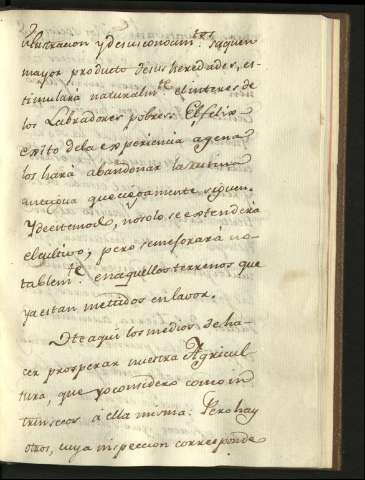 ilustracion y de sus conocim.tos saquen
mayor producto de sus heredades, es-
timulará naturalm.te el interes de
los Labradores pobres. El feliz
exito de la experiencia agena
los hará abandonar la rutina
antigua que ciegamente siguen.
Y de este modo, no solo se extenderá
el cultivo, pero se mejorará no-
tablem.te en aquellos terrenos que
ya estan metidos en lavor.
He aqui los medios de ha-
cer prosperar nuestra Agricul-
tura, que yo considero como in
trinsecos á ella misma. Pero hay
otros, cuya inspeccion corresponde